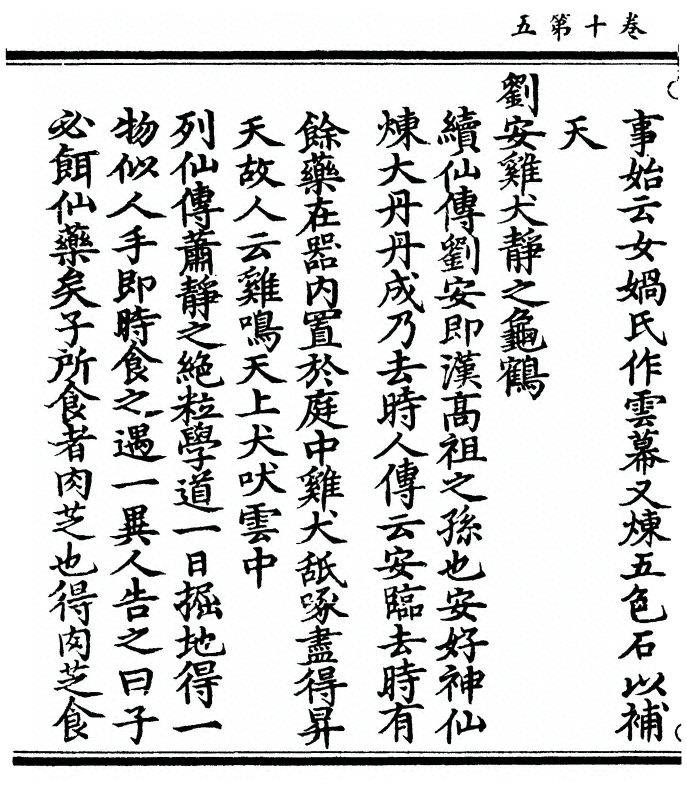 卷十第五
事始云女媧氏作雲幕又煉五色石以補
天
劉安雞犬靜之龜鶴
續仙傳劉安即漢高祖之孫也安好神仙
煉大丹丹成乃去時人傳云安臨去時有
餘藥在器内置於庭中雞犬舐啄盡得昇
天故人云雞鳴天上犬吠雲中
列仙傳蕭靜之絶粒學道一日掘地得一
物似人手即時食之遇一異人告之曰子
必餌仙藥矣子所食者肉芝也得肉芝食